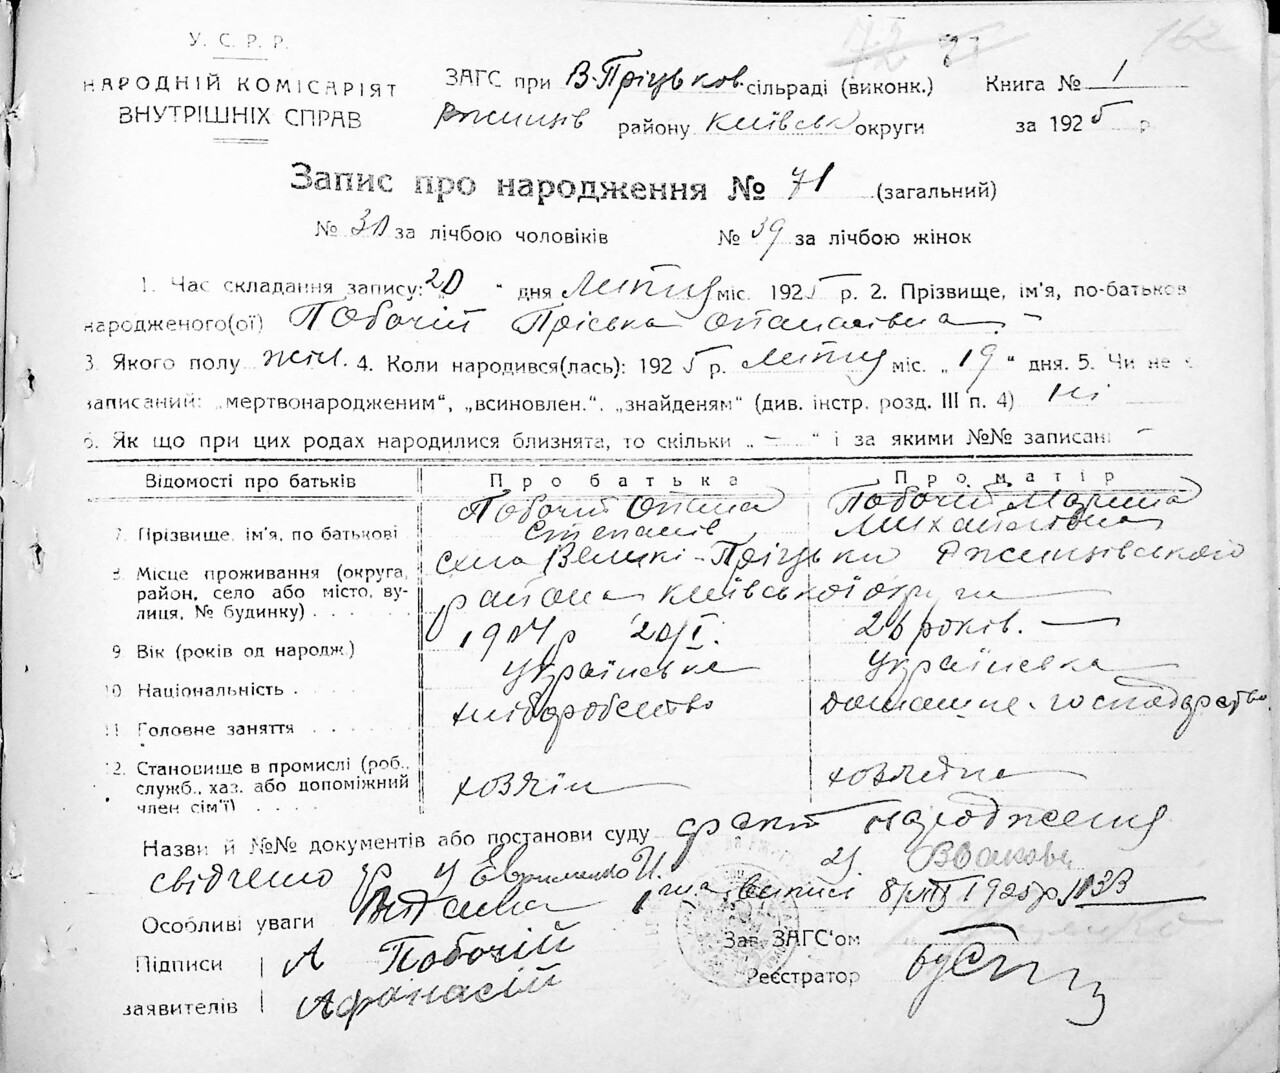 162
У. С. Р. Р.
НАРОДНІЙ КОМІСАРІЯТ
ВНУТРІШНІХ СПРАВ
ЗАГС при В-Пріцьков. сільраді (виконк.) Книга № 1
Ржищів району Київськ округи за 1925 р.
Запис про народження № 71 (загальний)
№ за лічбою чоловіків № 39 за лічбою жінок
1. Час складання запису: „20 “ дня лютня міс. 1925 р. 2. Прізвище, ім'я, по-батькові
народженого(ої) Побочій Пріська Опанасівна. –
3. Якого полу жін. 4. Коли народився(лась): 1925 р. лютня міс. „19 “ дня. 5. Чи не є
записаний: „мертвонародженим“, „всиновлен.“, „знайденям“ (див. інстр. розд. III п. 4) Ні
6. Як що при цих родах народилися близнята, то скільки „ – “ і за якими №№ записані –
Відомості про батьків Про батька Про матір
7. Прізвище, ім'я, по батькові Побочій Опанас Степанів Побочій Марина Михайлівна
8. Місце проживання (округа, район, село або місто, вулиця, № будинку) села Великі-Пріцьки Ржищівського
района Київської округи
9 Вік (років од народж.) 1904 р 20/I. 26 років. —
10 Національність . українська українська
11 Головне заняття хліборобство домашнє-господарство
12. Становище в промислі (роб., служб., хаз. або допоміжний член сім'ї) хозяїн хозяйка
Назви й №№ документів або постанови суду факт народження
свідчено Евфименко И.
Особливі уваги Видана виписі 8/VIII 1925 р
Підписи А Побочій Зав. ЗАГС'ом
заявителів Афанасій Реєстратор